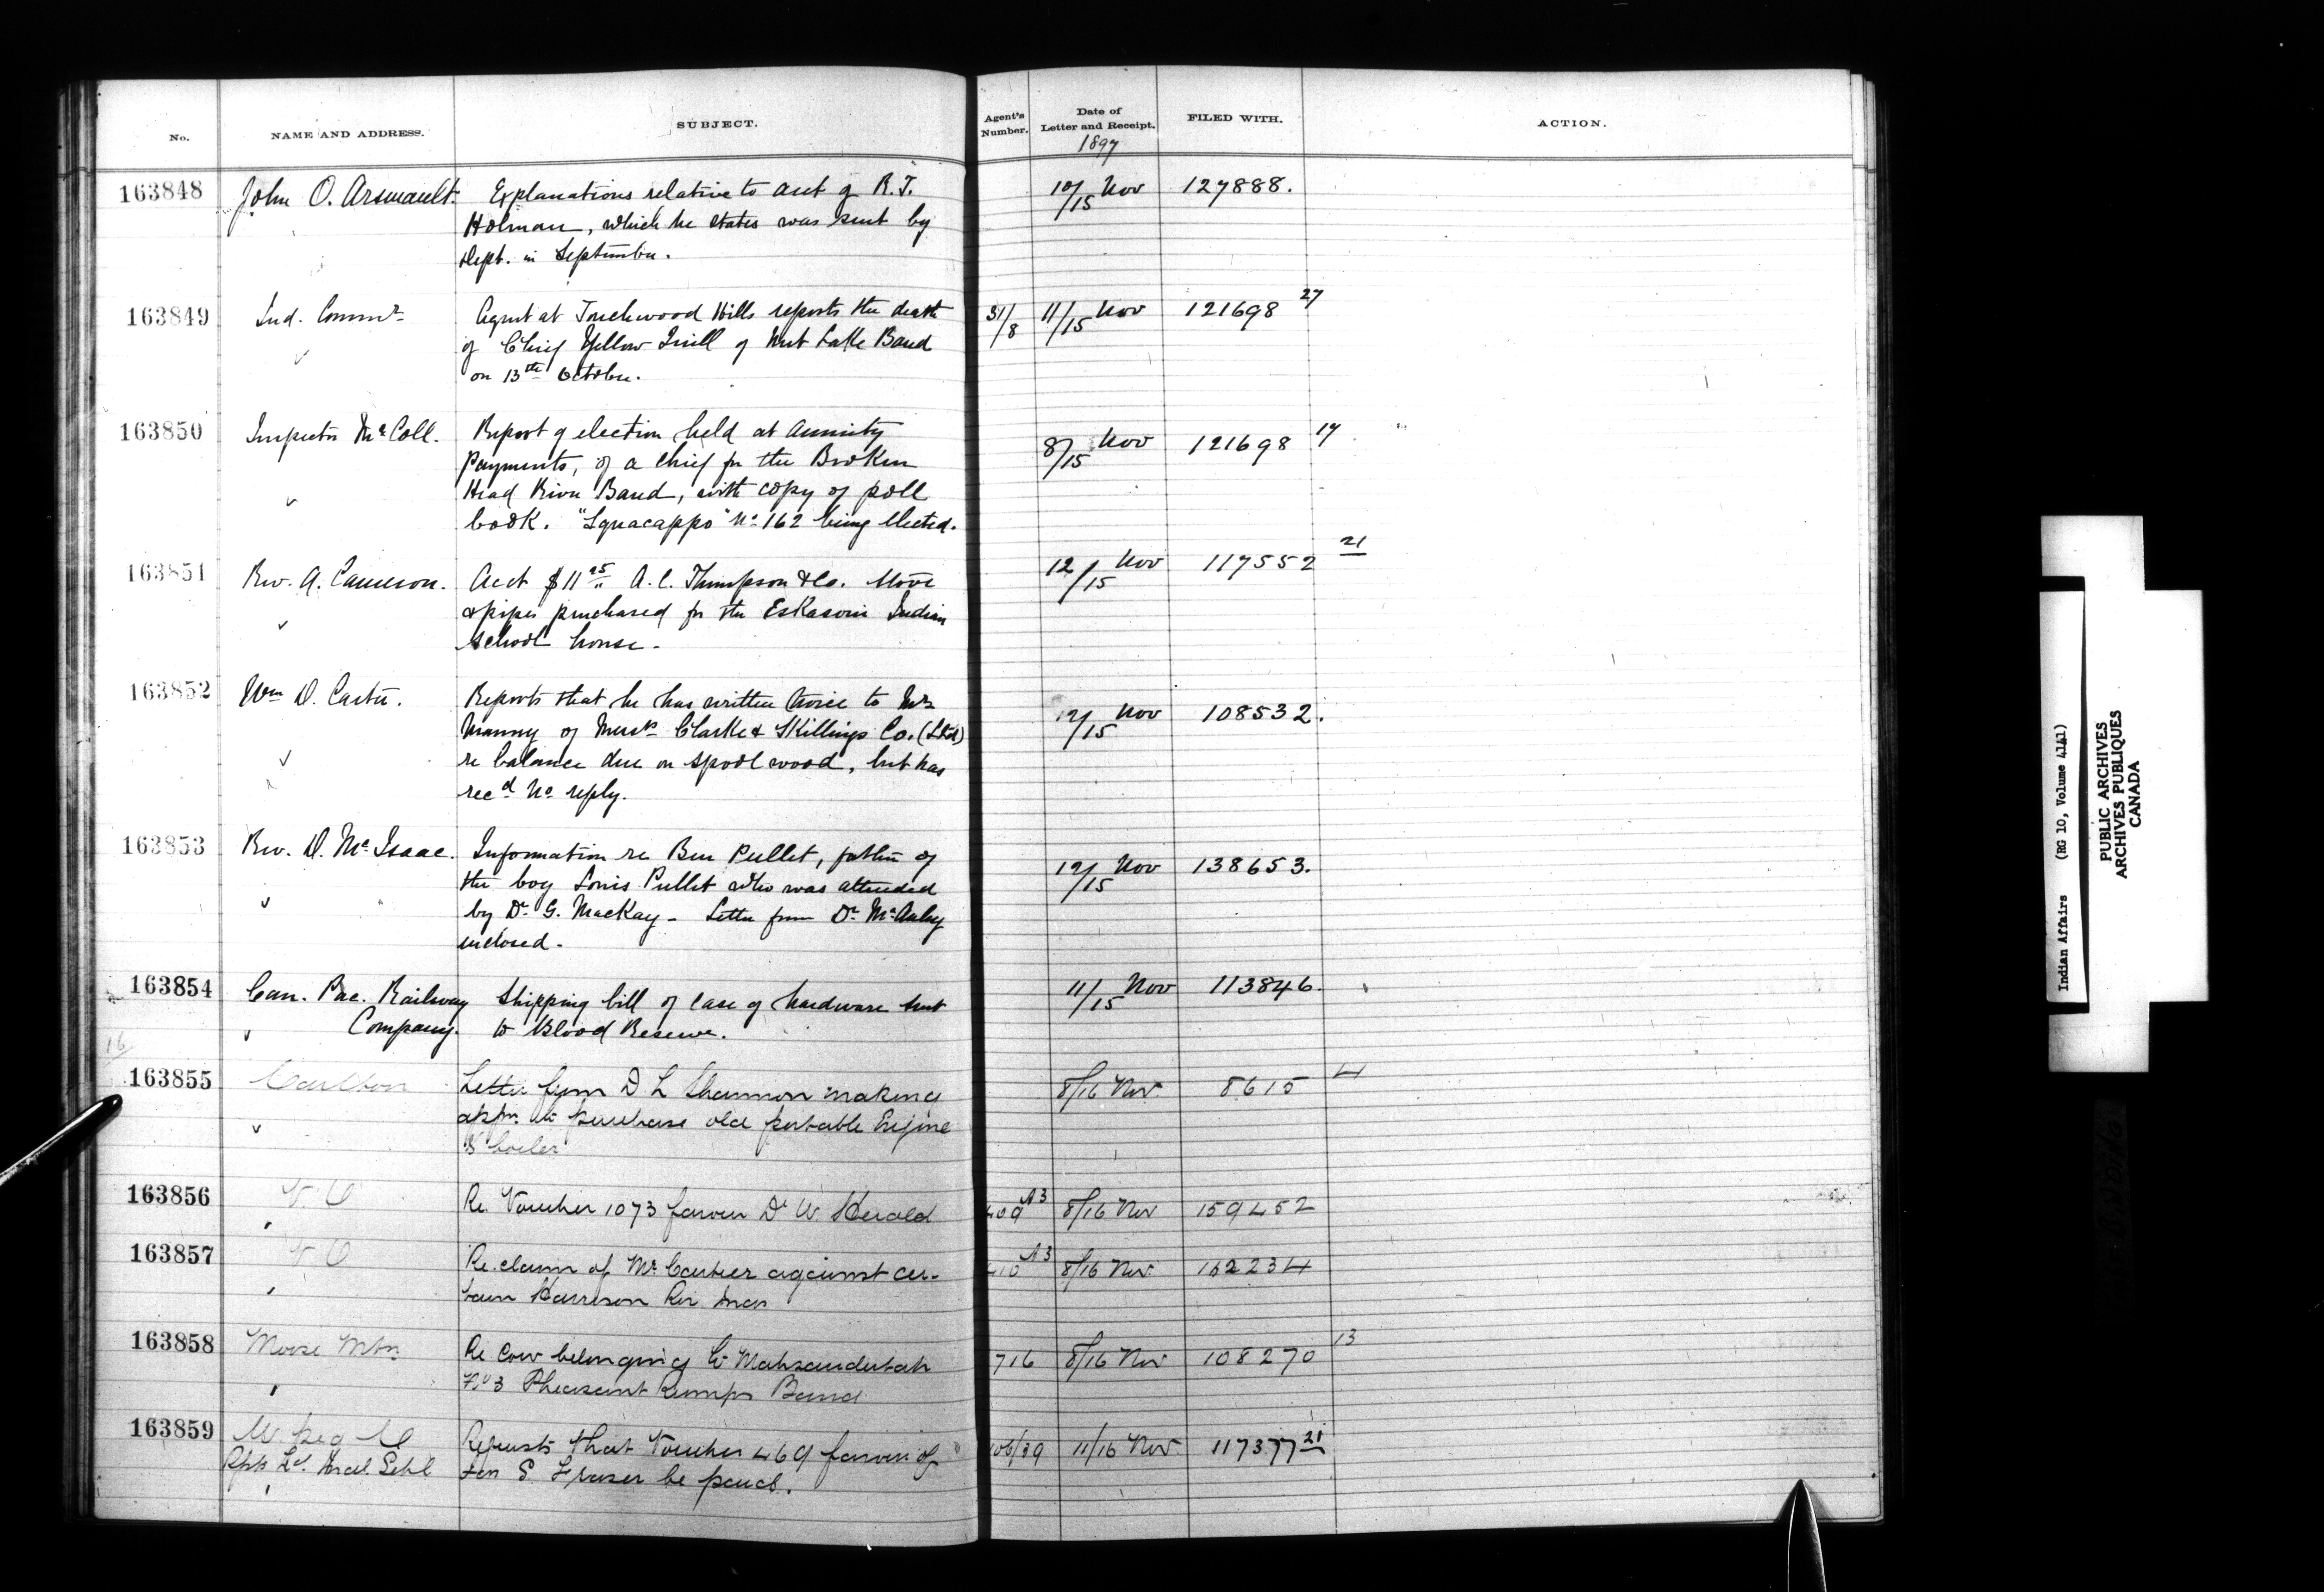 No. NAME AND ADDRESS. SUBJECT. Agent's Number. Date of Letter and Receipt. FILED WITH. ACTION.
1897
163848 John O. Arsenault. Explanations relative to acct of R. T. 10/15 Nov 127888.
Holman, which he states was sent by
Dept. in September.
163849 Ind. Commr Agent at Touchwood Hills reports the death 31/8 11/15 Nov 121698 27
of Chief Yellow Quill of Nut Lake Band
on 13th October.
163850 Inspector McColl. Report of election held at annuity 8/15 Nov 121698 17
payments, of a chief for the Broken
Head River Band, with copy of poll
book. "Squacappo" No 162 being elected.
163851 Rev. A. Cameron. Acct $11 25 A. C. Thompson & Co. stove 12/15 Nov 117552 21
& pipes purchased for the Eskasoni Indian
School house.
163852 Wm D. Carter. Reports that he has written twice to Mr 12/15 Nov 108532.
Manny of Messrs Clarke & Skillings Co. (Ltd)
re balance due on spool wood, but has
recd no reply.
163853 Rev. D. McIsaac. Information re Ben Pullet, father of 12/15 Nov 138653.
the boy Louis Pullet who was attended
by Dr G. MacKay - Letter from Dr
enclosed.
163854 Can. Pac. Railway Shipping bill of case of hardware sent 11/15 Nov 113846.
Company. to Blood Reserve.
16
163855 Carlton Letter from D L Shannon making 8/16 Nov. 8615 4
appn. to purchase old portable Engine
& boiler
163856 V. O Re. Voucher 1073 favour Dr W. Herald 409 A3 8/16 Nov 159452
163857 V O Re. claim of Mr. Cartier against cer- 410 A3 8/16 Nov. 162234
tain Harrison Riv. Inds
163858 Moose Mtn Re Cow belonging to 716 8/16 Nov 108270 13
No 3 Pheasant Rumps Band
163859 W. peg Requests that Voucher 469 favour of 106/39 11/16 Nov 117377 21
Rpts Ld. Incl. Schl S. Fraser be paid.
Indian Affairs (RG 10, Volume 4141)
PUBLIC ARCHIVES
ARCHIVES PUBLIQUES
CANADA